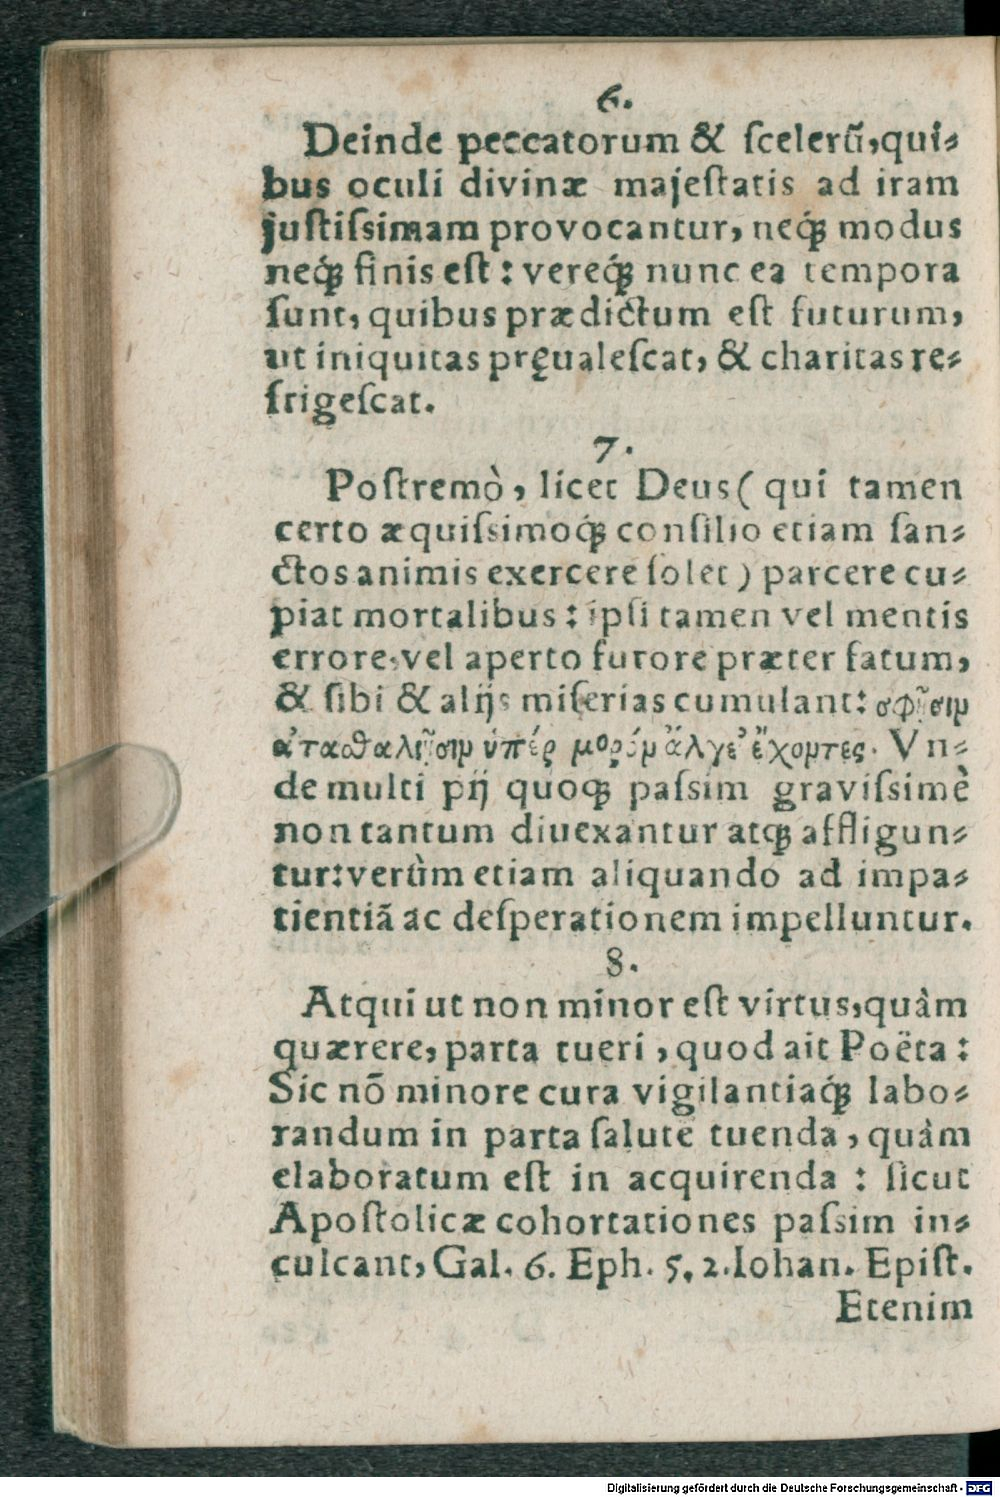 6.
Deinde peccatorum & ſcelerũ,qui⸗
bus oculi divinæ majeſtatis ad iram
juſtiſsimam provocantur, neq́; modus
neq́; finis eſt : vereq́; nunc ea tempora
ſunt, quibus prædictum eſt futurum,
ut iniquitas pręualeſcat, & charitas re⸗
frigeſcat.
7.
Poſtremò, licet Deus ( qui tamen
certo æquiſsimoq́; conſilio etiam ſan⸗
ctos animis exercere ſolet ) parcere cu⸗
piat mortalibus : ipſi tamen vel mentis
errore, vel aperto furore præter fatum,
& ſibi & alijs miſerias cumulant: σφῇσιμ
ἀταθαλιῇσιμ ὑπέρ μορόμ ἄλγε᾽ ἔχομτες. Vn⸗
de multi pij quoq; paſsim graviſsimè
non tantum diuexantur atq; affligun⸗
tur:verùm etiam aliquando ad impa⸗
tientiã ac deſperationem impelluntur.
8.
Atqui ut non minor eſt virtus,quàm
quærere, parta tueri , quod ait Poëta :
Sic nõ minore cura vigilantiaq́; labo⸗
randum in parta ſalute tuenda , quàm
elaboratum eſt in acquirenda : ſicut
Apoſtolicæ cohortationes paſsim in⸗
culcant, Gal. 6. Eph. 5. 2.Iohan. Epiſt.
Etenim
Digitalisierung gefördert durch die Deutsche Forschungsgemeinschaft - DFG